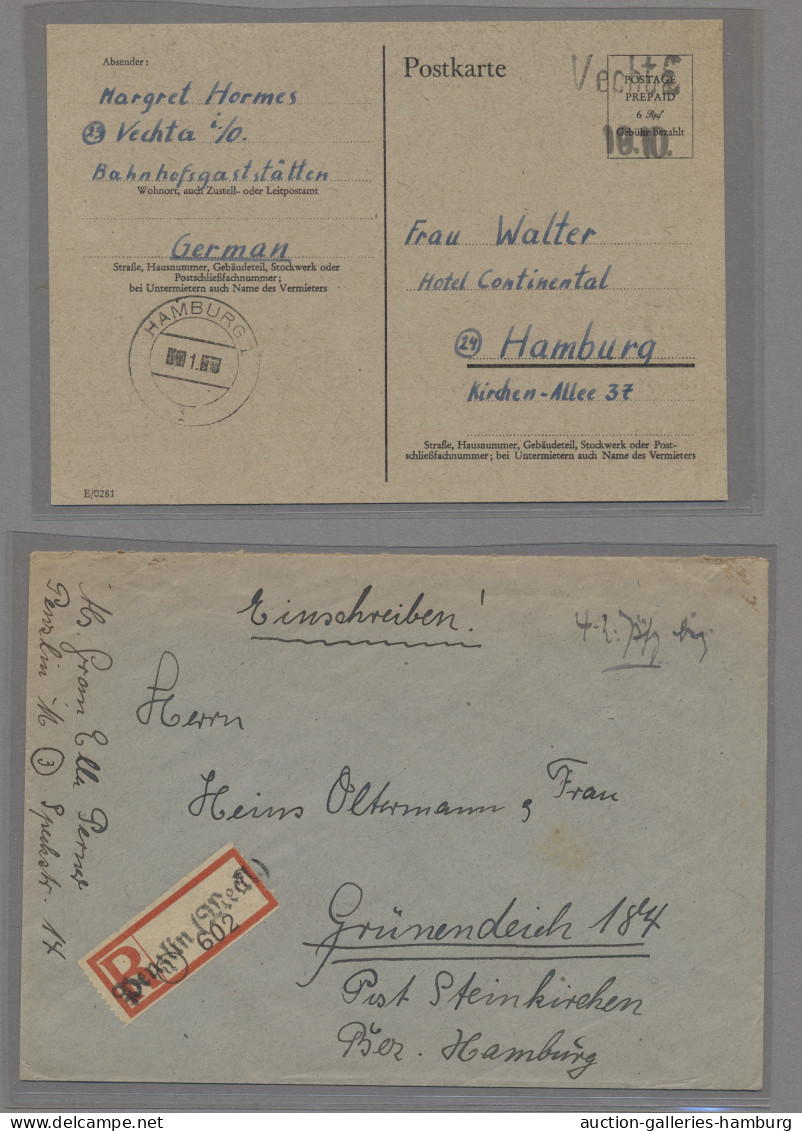 Absender:
Margret Hormes
23 Vechta i/O.
Bahnhofsgaststätten
Wohnort, auch Zustell- oder Leitpostamt
German
Straße, Hausnummer, Gebäudeteil, Stockwerk oder
Postschließfachnummer;
bei Untermietern auch Name des Vermieters
HAMBURG 1
1.
E/0281
Postkarte
Vechta
POSTAGE
PREPAID
6 Rpf
Gebühr bezahlt
10.10.
Frau Walter
Hotel Continental
24 Hamburg
Kirchen-Allee 37
Straße, Hausnummer, Gebäudeteil, Stockwerk oder Post-
schließfachnummer; bei Untermietern auch Name des Vermieters
Einschreiben!
Herrn
Heins Oltermann & Frau
Grünendeich 184
Post Steinkirchen
Bez. Hamburg
Ella
Penzlin M 3 Speckstr. 14
R
Penzlin (Meckl)
602
auction-galleries-hamburg